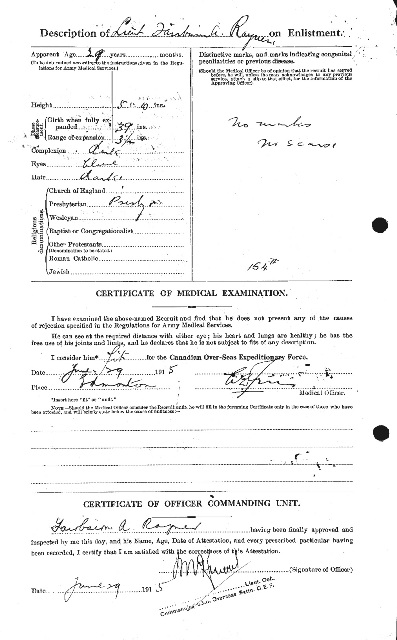 Description of Lieut Fairbairn A. Rayner on Enlistment.
Apparent Age 29 years months.
(To be determined according to the instructions given in the Regulations for Army Medical Services.)
Height 5 ft. ins.
Chest Measurement
Girth when fully expanded 39 ins.
Range of expansion 3½ ins.
Complexion Dark
Eyes Blue
Hair Dark
Religious denominations.
Church of England
Presbyterian
Wesleyan
Baptist or Congregationalist
Other Protestants
(Denomination to be stated.)
Roman Catholic
Jewish
Distinctive marks, and marks indicating congenital peculiarities or previous disease.
(Should the Medical Officer be of opinion that the recruit has served before, he will, unless the man acknowledges to any previous service, attach a slip to that effect, for the information of the Approving Officer).
No marks
No scars
164th
CERTIFICATE OF MEDICAL EXAMINATION.
I have examined the above-named Recruit and find that he does not present any of the causes
of rejection specified in the Regulations for Army Medical Services.
He can see at the required distance with either eye; his heart and lungs are healthy; he has the
free use of his joints and limbs, and he declares that he is not subject to fits of any description.
I consider him* Fit for the Canadian Over-Seas Expeditionary Force.
Date 29 1915
Place Edmonton
Medical Officer.
*Insert here "fit" or "unfit."
NOTE.—Should the Medical Officer consider the Recruit unfit, he will fill in the foregoing Certificate only in the case of those who have
been attested, and will briefly state below the cause of unfitness:—
CERTIFICATE OF OFFICER COMMANDING UNIT.
Fairbairn A Rayner having been finally approved and
inspected by me this day, and his Name, Age, Date of Attestation, and every prescribed particular having
been recorded, I certify that I am satisfied with the correctness of this Attestation.
(Signature of Officer)
Lieut. Col.
Date June 29 1915
Overseas Battn. C.E.F.